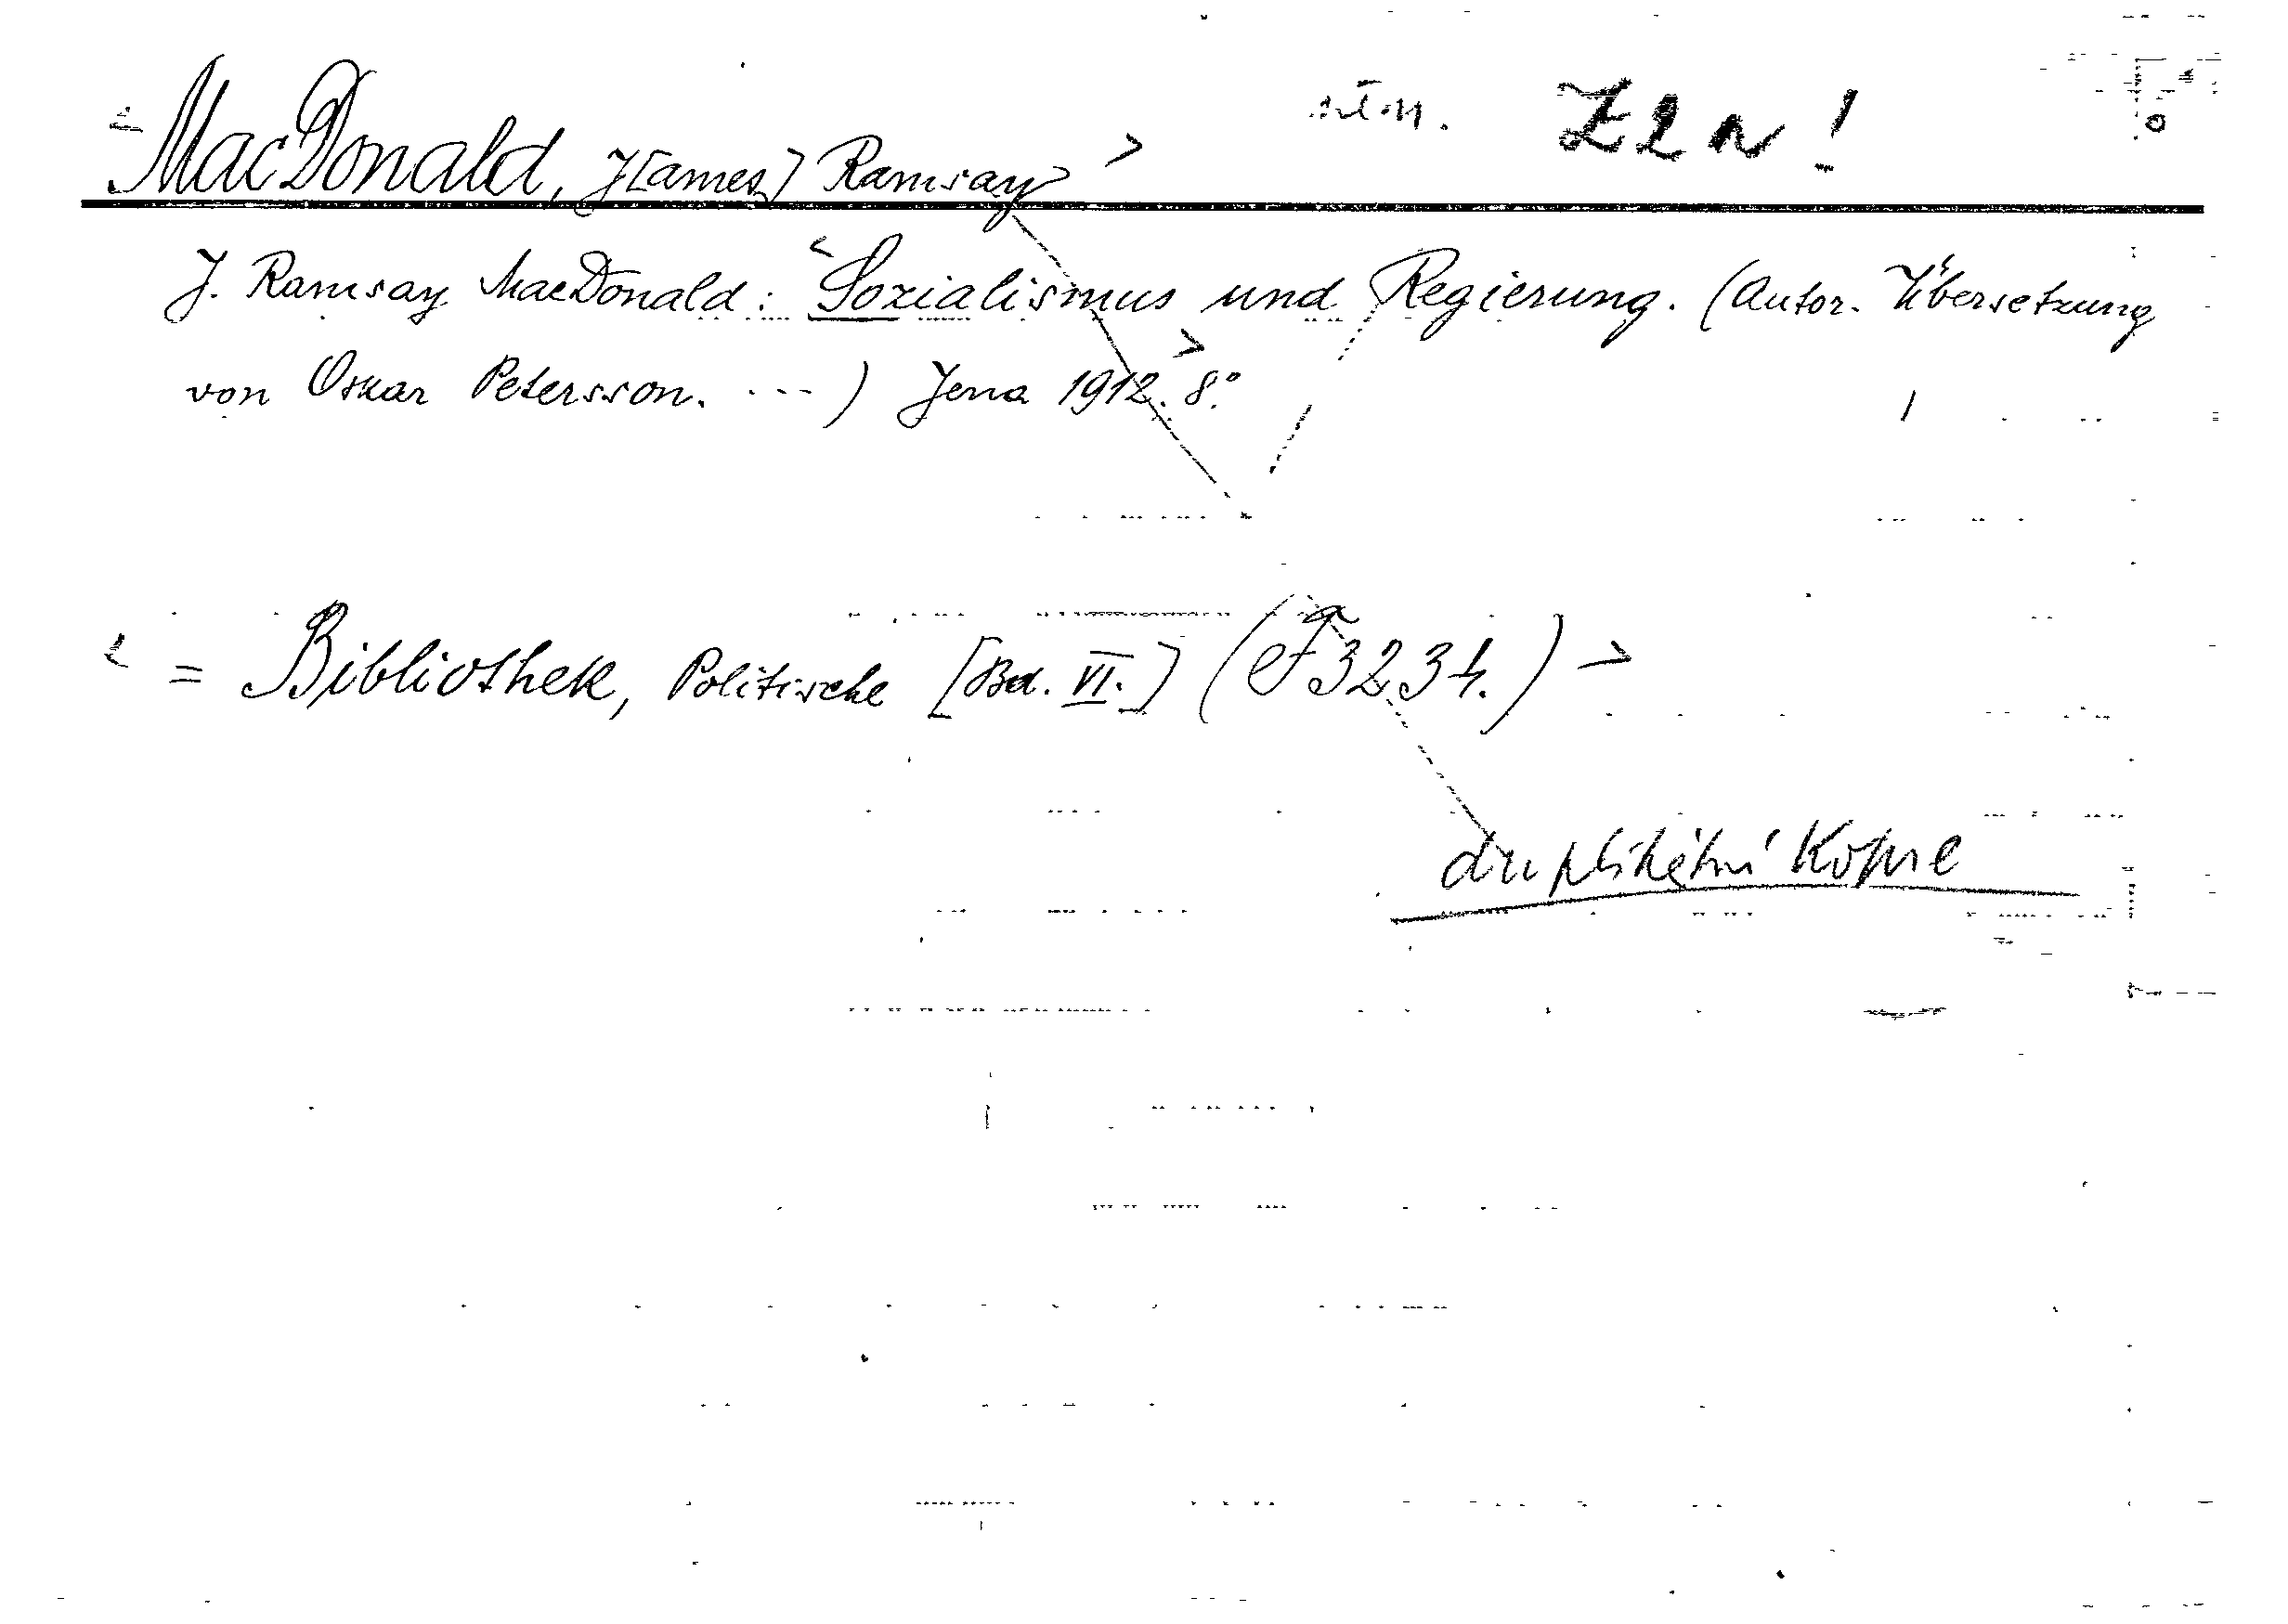 MacDonald, J[ames] Ramsay
J. Ramsay MacDonald: Sozialismus und Regierung. (Autor. Übersetzung
von Oskar Petersson. ...) Jena 1912. 8°.
= Bibliothek, Politische [Bd. VI.] (F 3234.)
duplikátní kopie